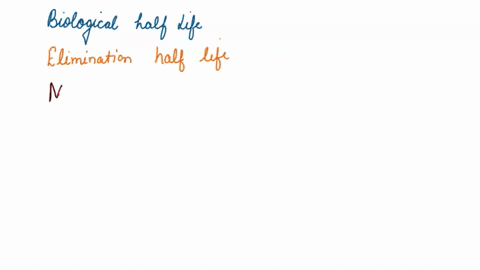 Biological half Life
Elimination half life
N